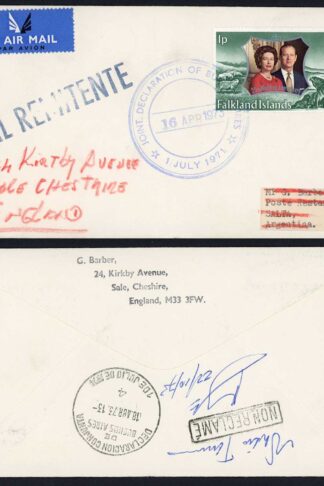 AIR MAIL
PAR AVION
1p
Falkland Islands
AL REMITENTE
JOINT DECLARATION OF B
16 APR 1973
1 JULY 1971
Kirkby Avenue
Sale CHESHIRE
England
Mr G. Barbe
Poste Resta
SALTA,
Argentina.
G. Barber,
24, Kirkby Avenue,
Sale, Cheshire,
England, M33 3FW.
1 DE JULIO DE 1971
BUENOS AIRES
18 ABR 73. 13-
4
DECLARACION CONJUNTA
DE
NON RECLAMÉ